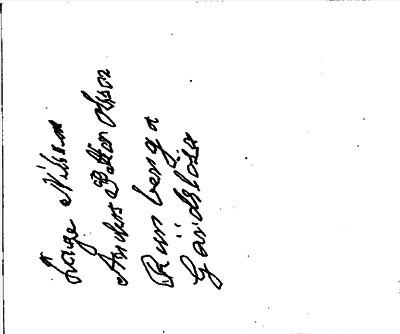 Lage Nilsson
Anders Petter Olsson
Runberga
Gärdslösa